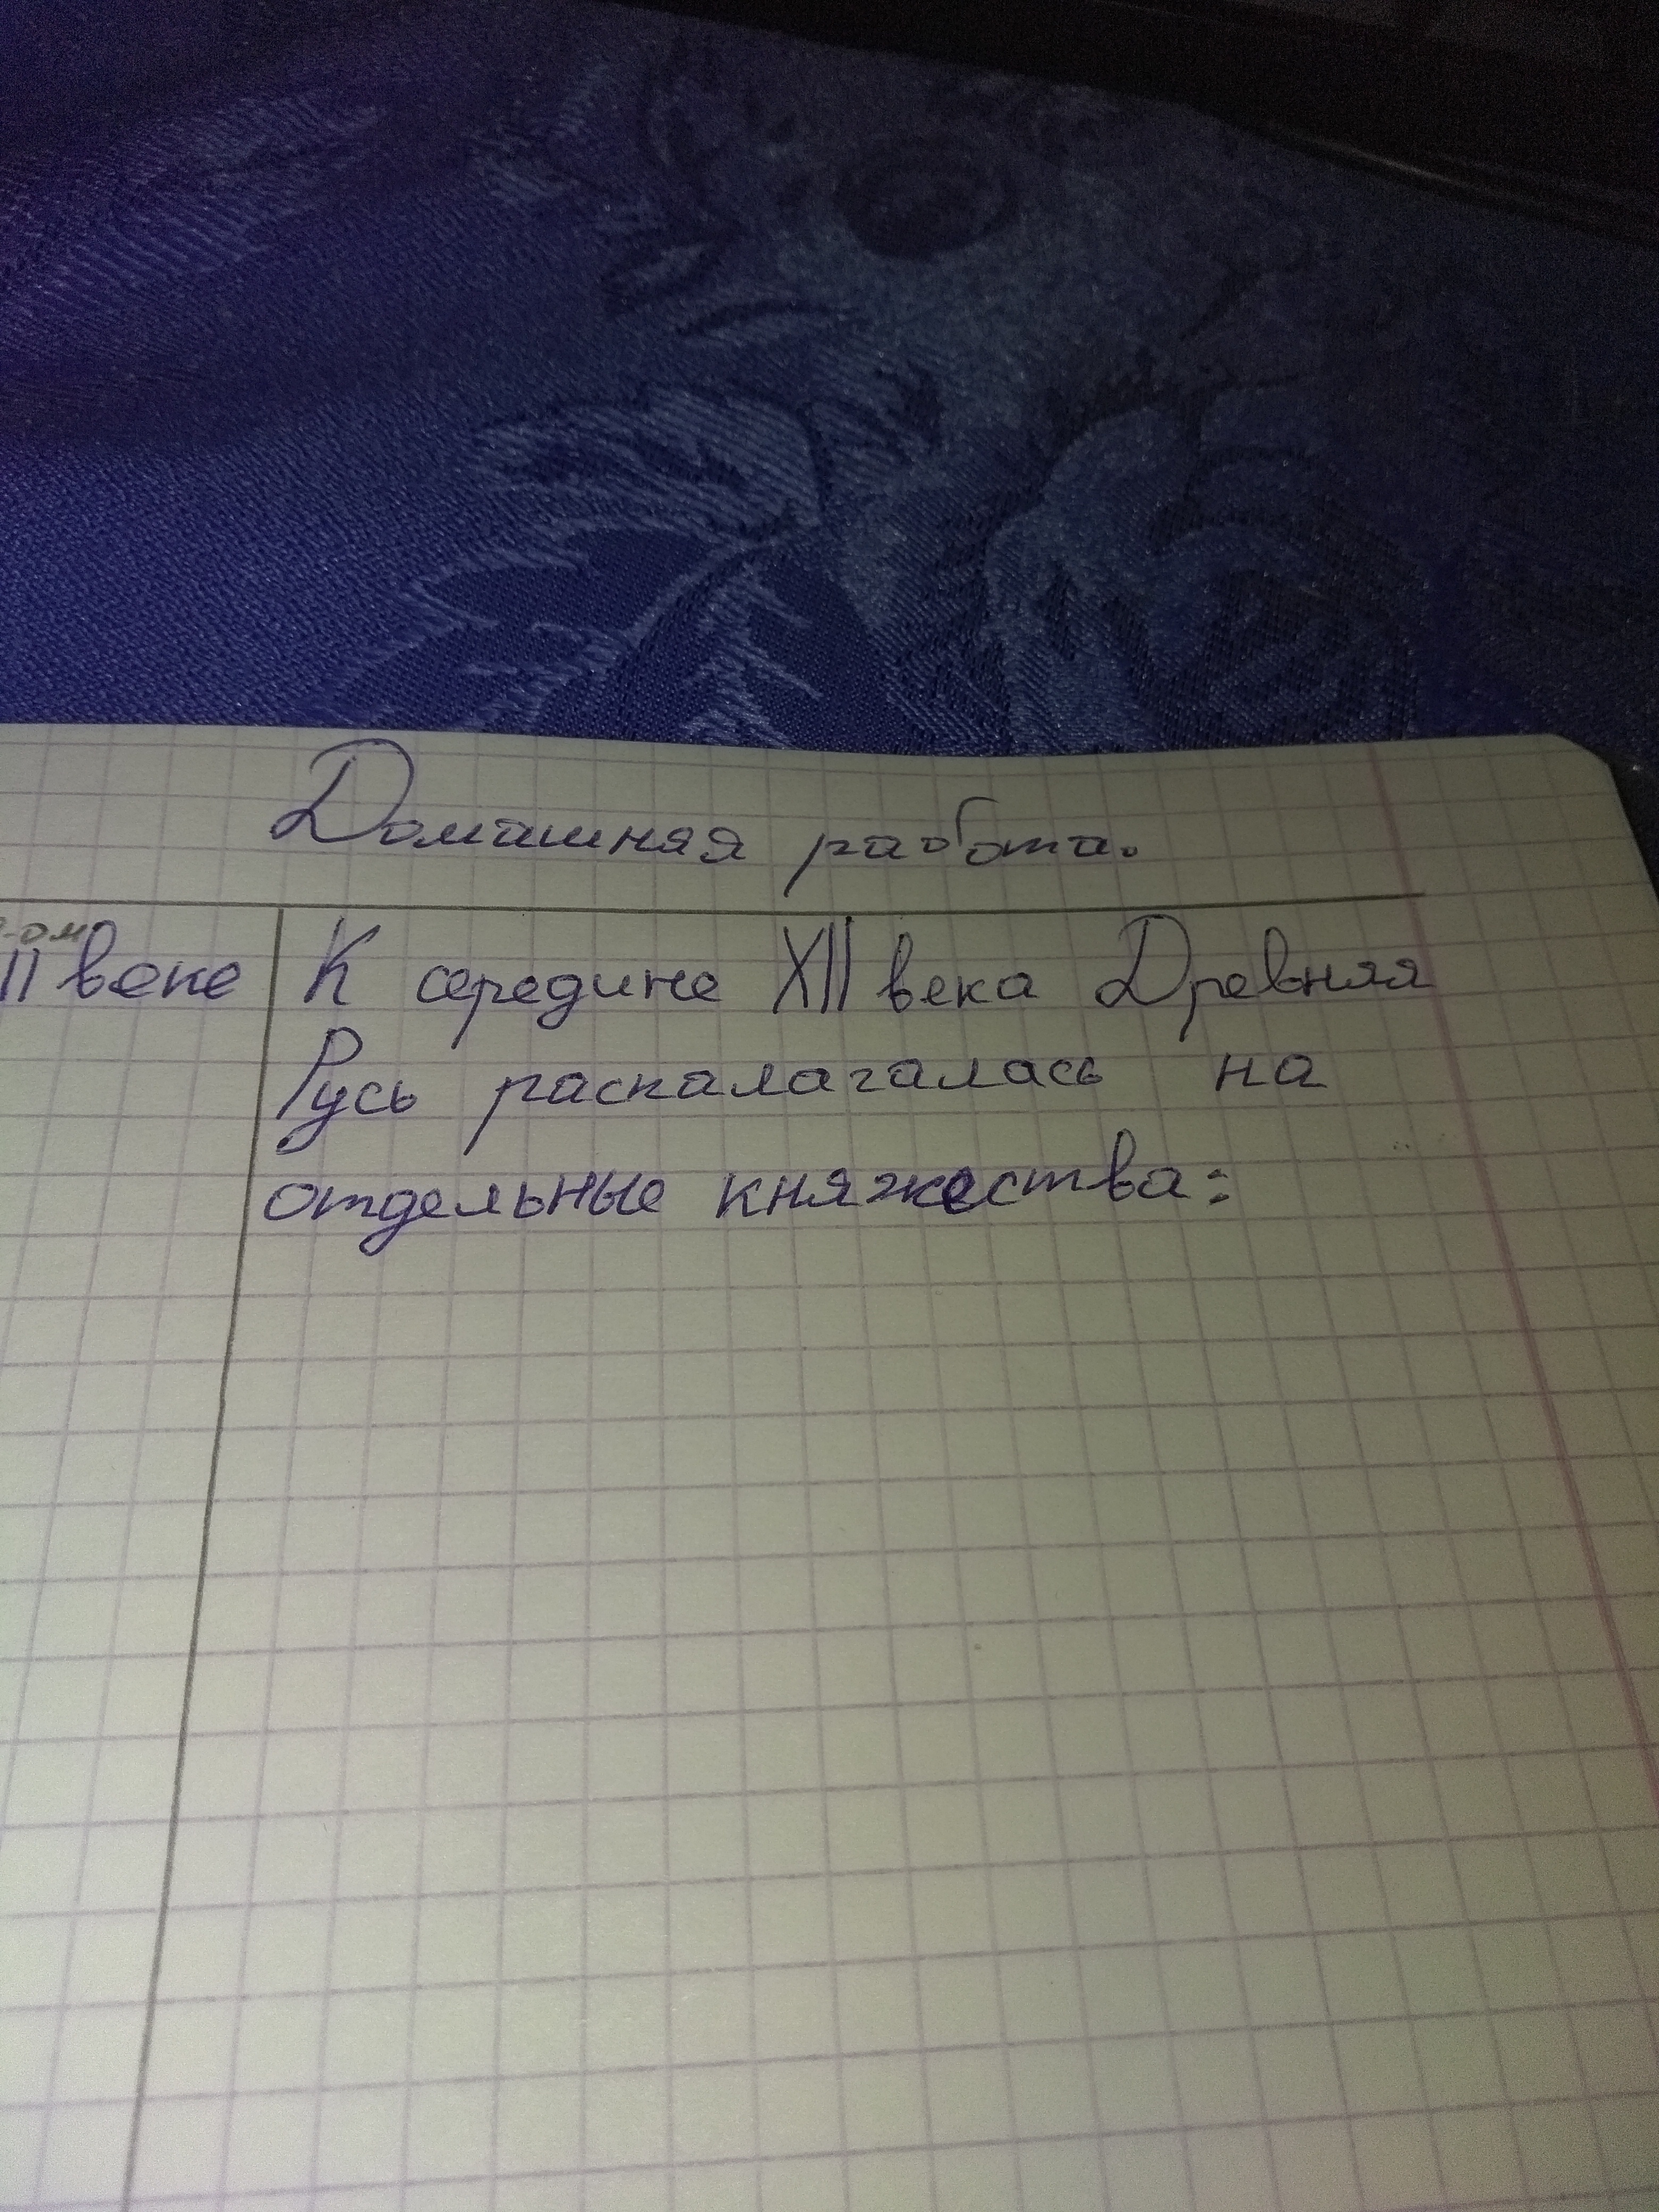 Домашняя работа.
-ом
II веке
К середине XII века Древняя
Русь распалагалась на
отдельные княжества: